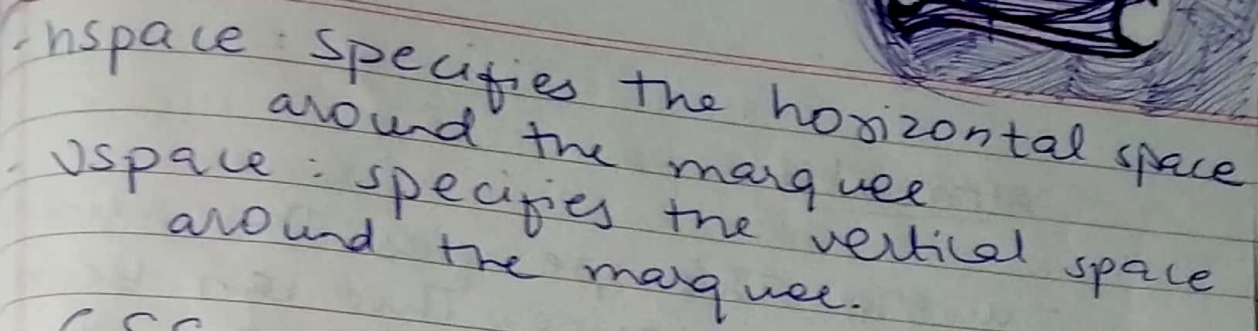 - hspace : specifies the horizontal space
around the marquee
- vspace : specifies the vertical space
around the marquee.